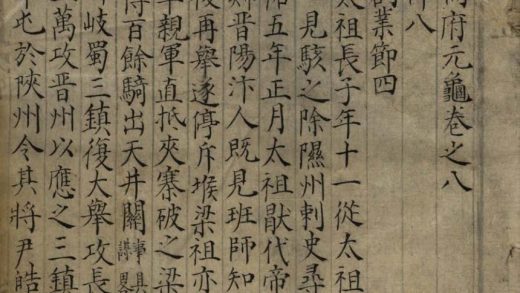 府元龜卷之八
八
業節四
太祖長子年十一從太祖
見駭之除隰州刺史尋
五年正月太祖猒代帝
師晉陽汴人既見班師知
後再舉遂停斥堠梁祖亦
率親軍直抵夾寨破之梁
得百餘騎出天井關
岐蜀三鎮復大舉攻長
萬攻晉州以應之三鎮
屯於陝州令其將尹皓